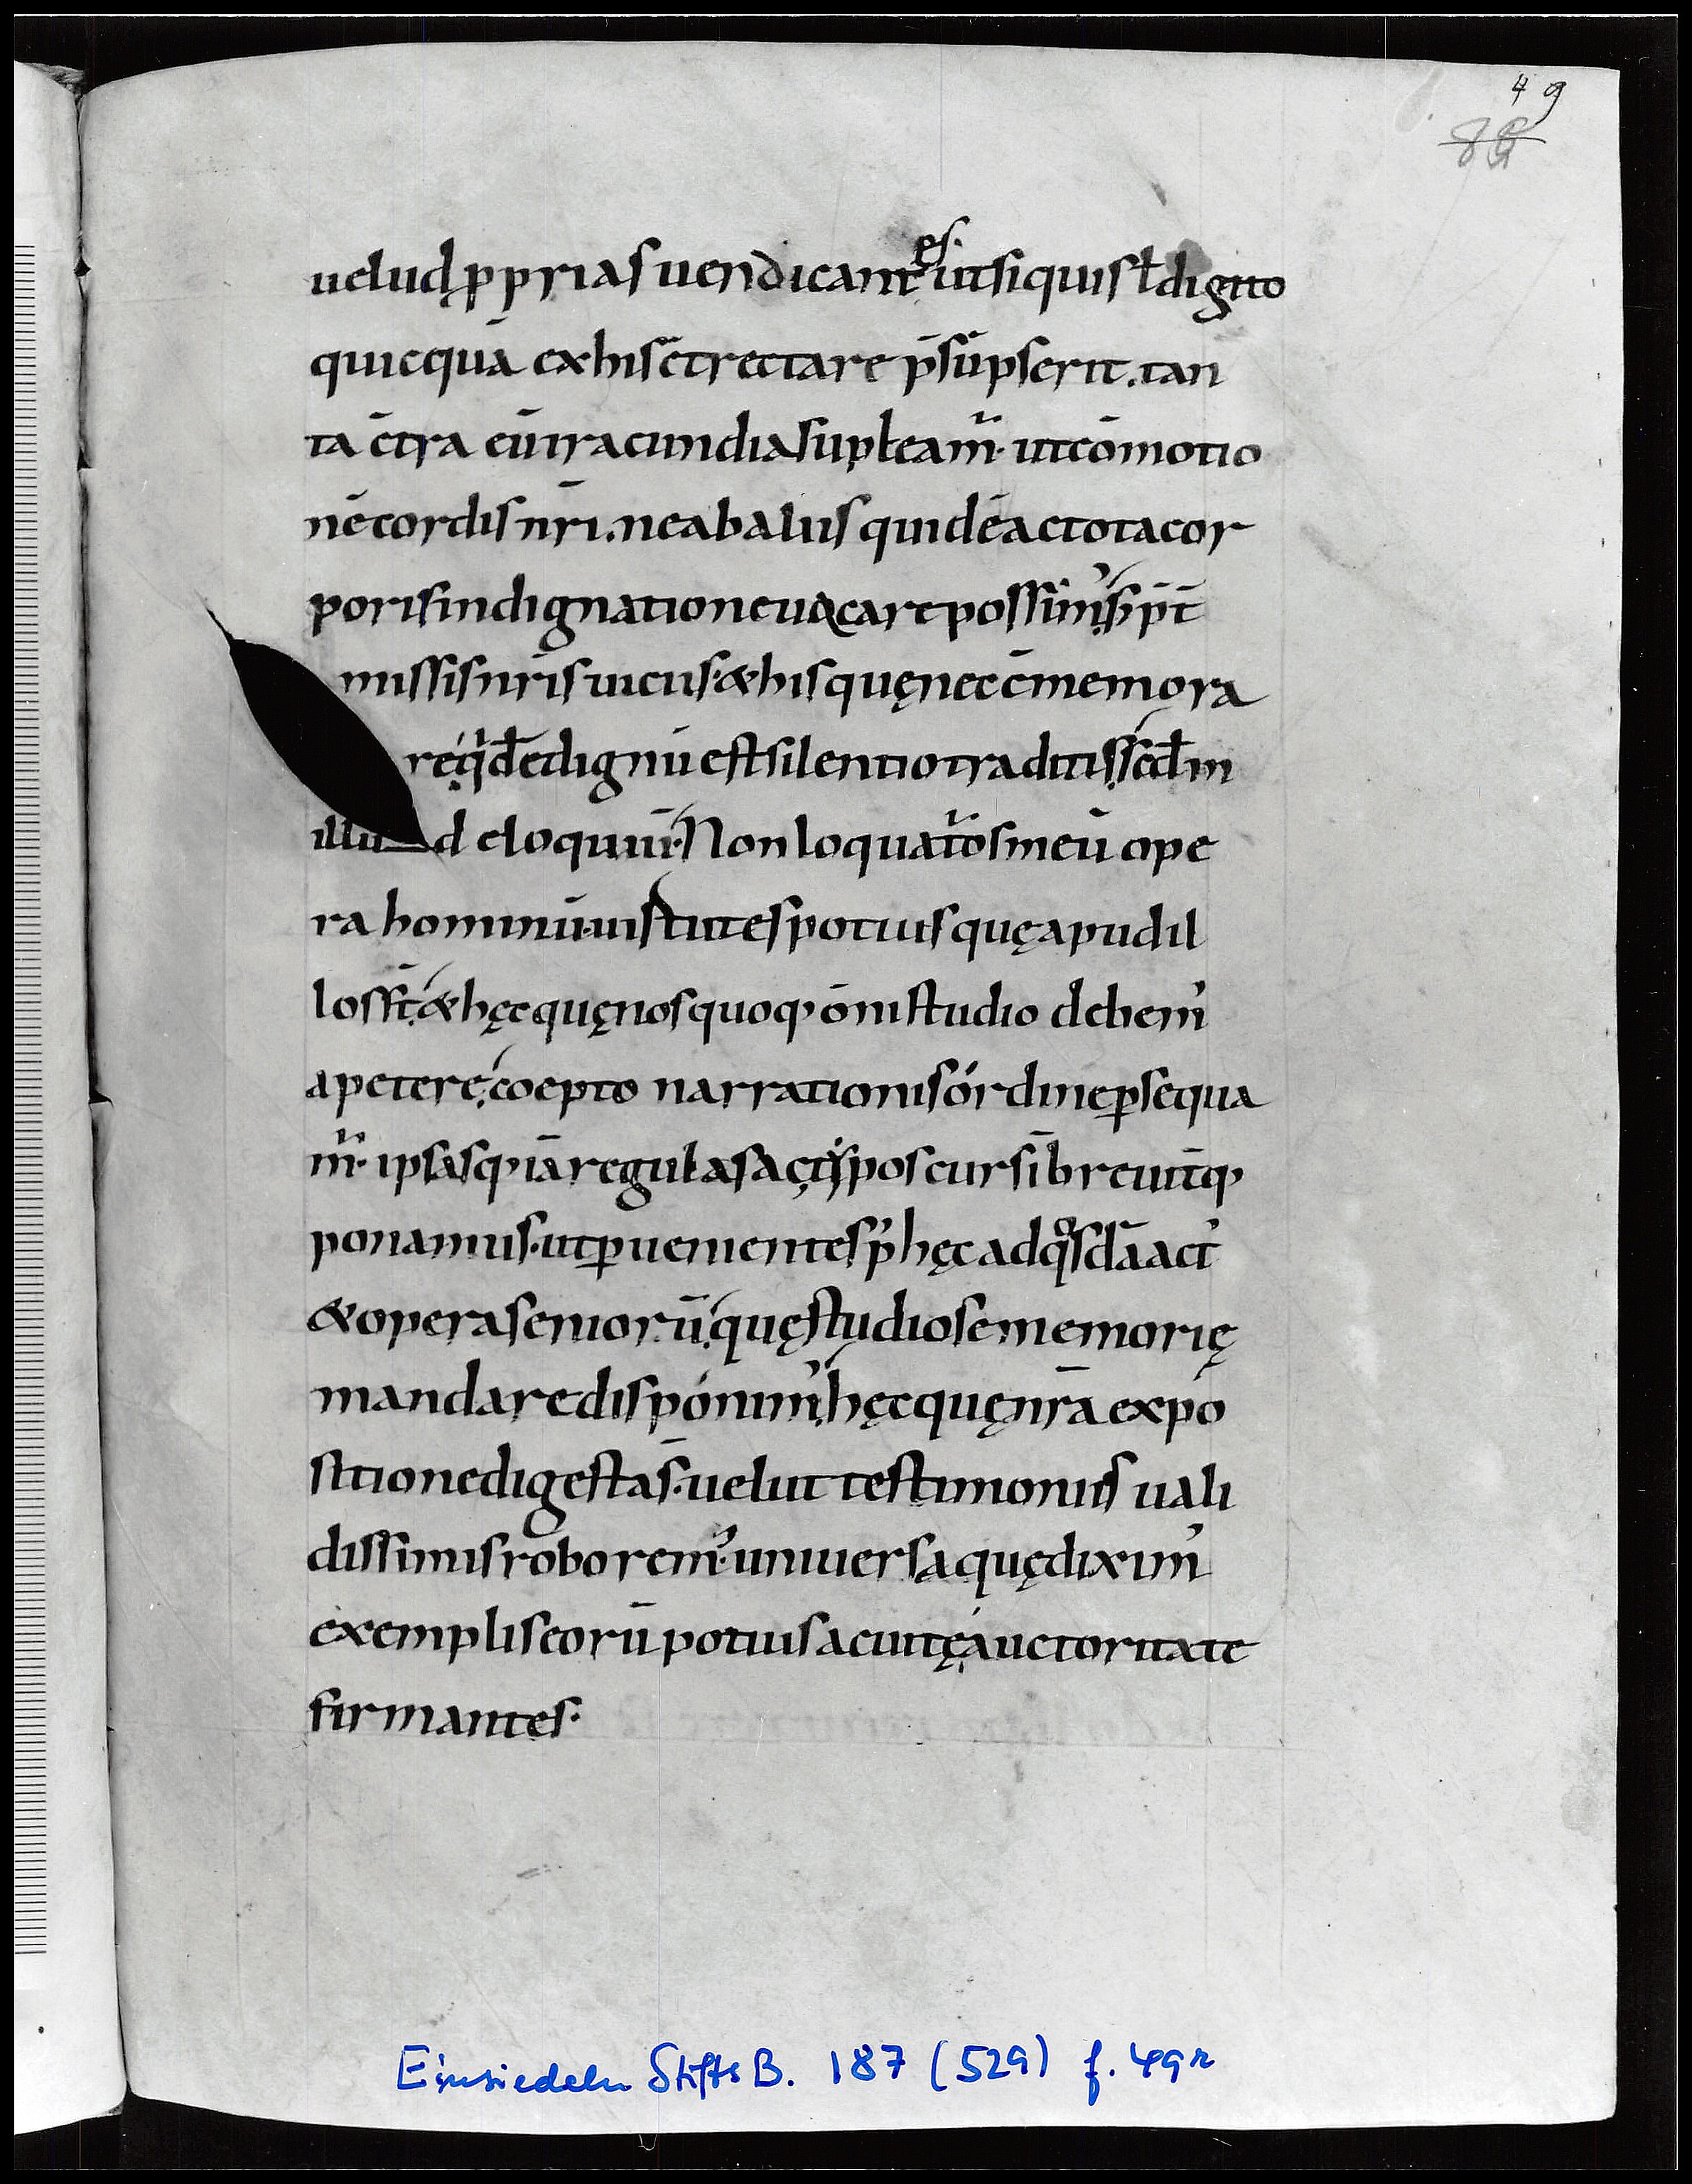 49
velud ꝓprias uendicantes· ut siquis ł digito
quicquā ex his ɔ̄trectare p̄sūpserit. tan
ta ɔ̄tra eū iracundia supleam̃· ut cōmotio
nē cordis nr̄i. ne a baluis quidē ac tota cor
poris indignatione uacare possim'; S; p̄t
missis nr̄is uicus· & his quę nec c̄memora
re q̇dē dignū est silentio traditis; sedm
illud eloquiū· Non loquat̃ os meū ope
ra hominū· uirtutes potius quę apud il
los st̄; & hęc quę nos quoq; ōni studio debem'
apetere; coepto narrationis órdine ꝑsequa
m̃· ipsasq; iā regulas ac t̄pos cursī breuit̄q;
ponamus· ut ꝑuenientes p' hęc ad qosdā act'
& opera seniorū; quę studiose memorię
mandare dispónim'; hęc quę nr̄a expo
sitione digesta s̄· uelut testimoniis uali
dissimis roborem'· uniuersa quę dixim'
exemplis eorū potius ac uitę áuctoritate
firmantes·
Einsiedeln StiftsB. 187 (529) f. 49r